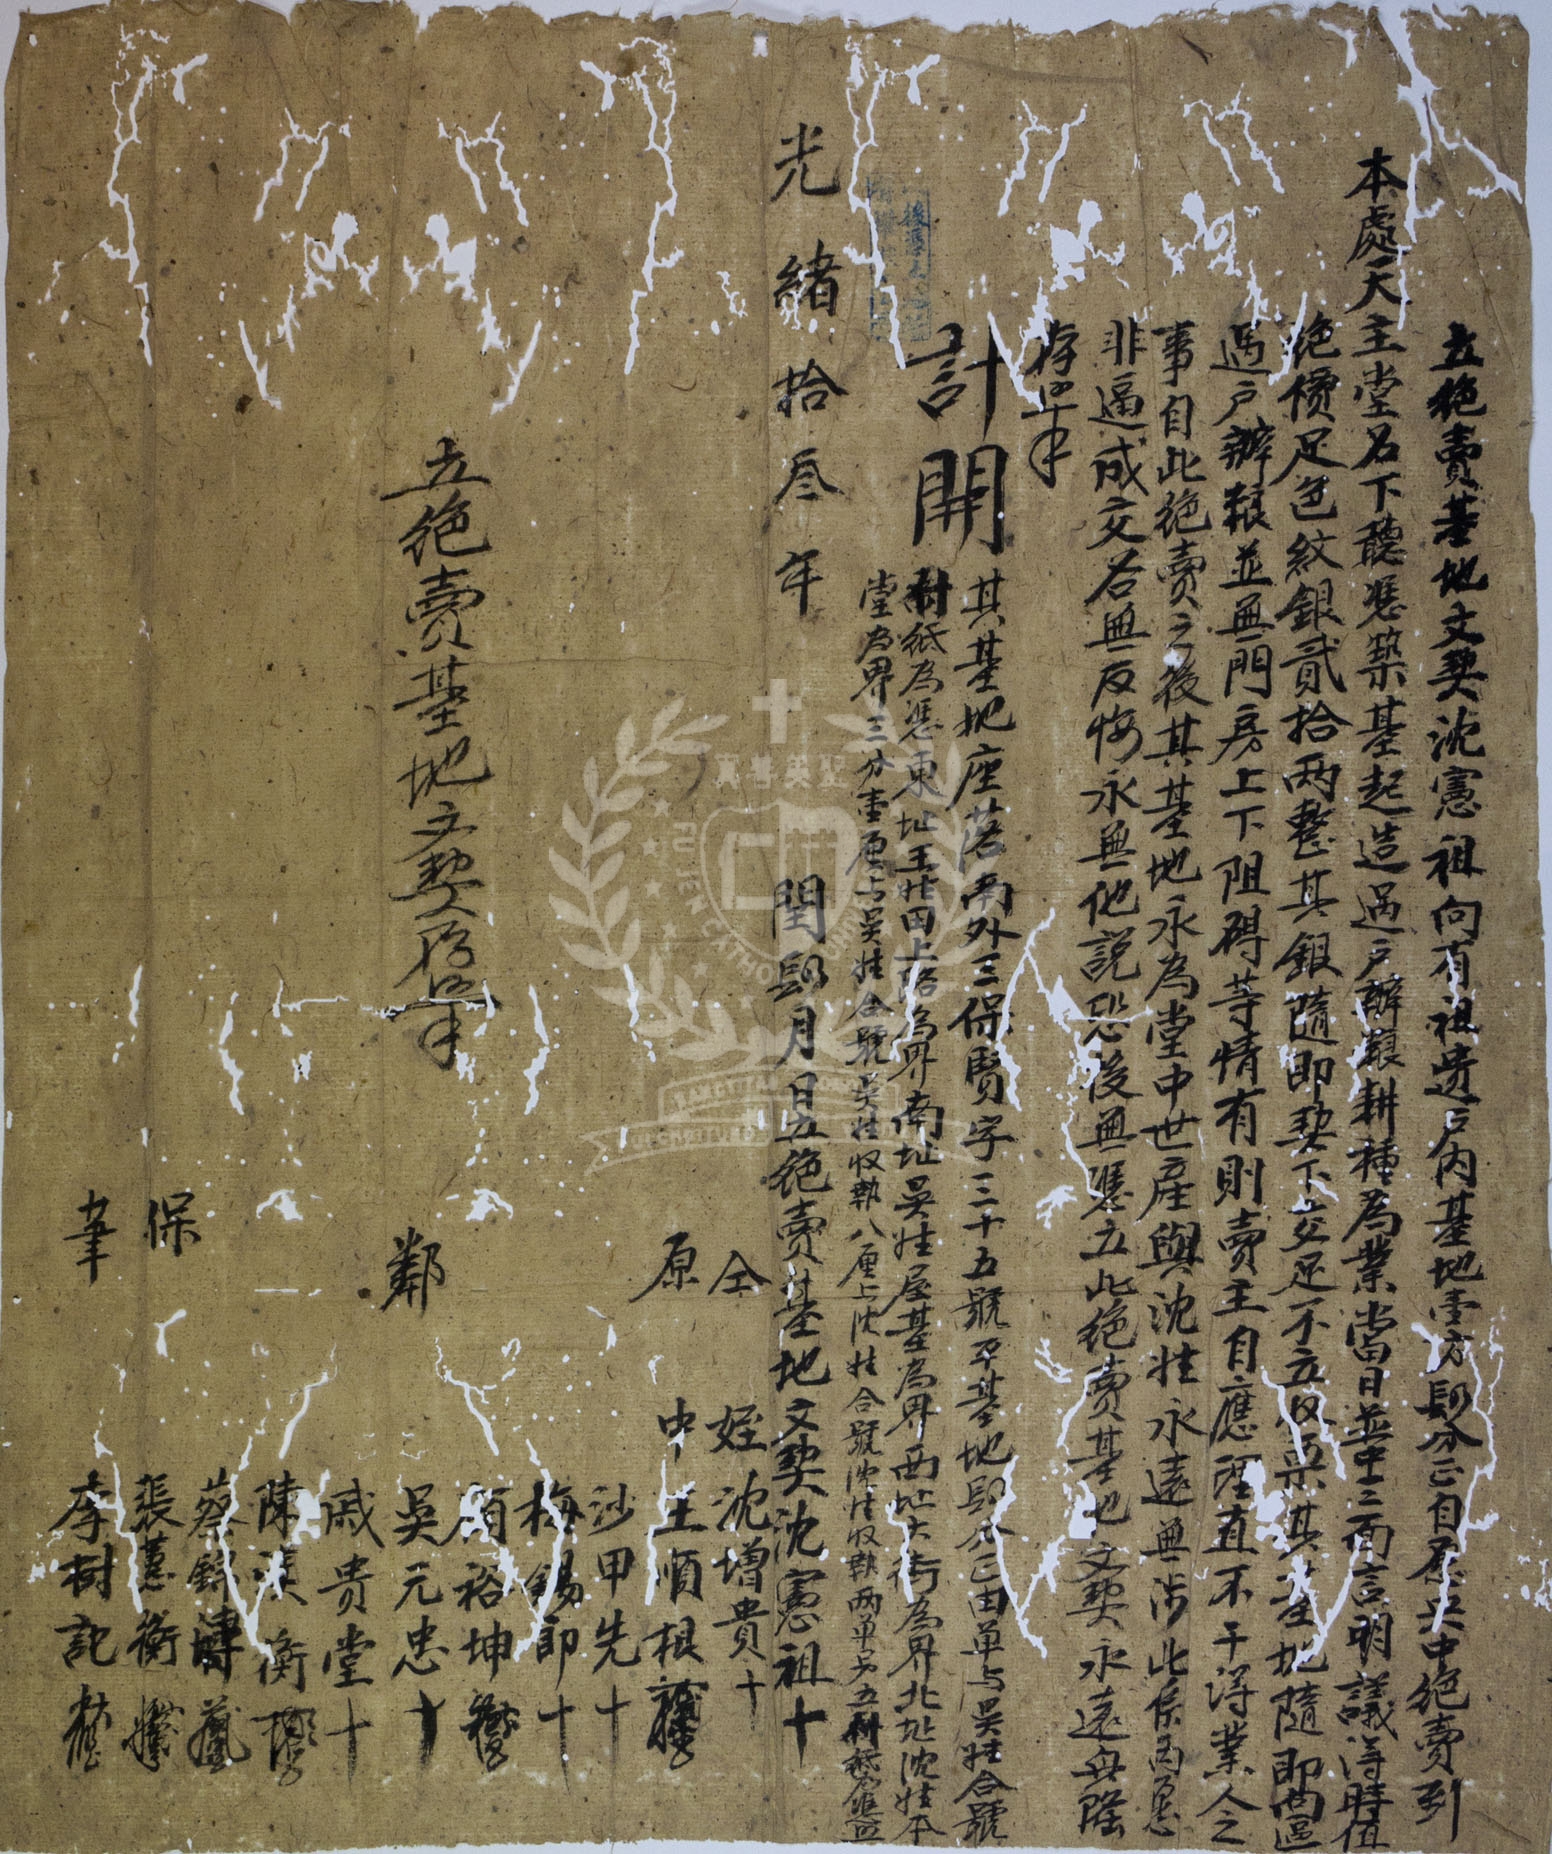 立絕賣基地文契沈憲祖向有祖遺戶內基地壹方肆分正自愿央中絕賣到
本處天主堂名下聽憑築基起造過戶辦粮耕種為業當日並中三面言明議得時值
絕價足色紋銀貳拾两整其銀隨即契下交足不立收票其基地隨即出區
過戶辦粮並無門房上下阻碍等情有則賣主自應理直不干得業人之
事自此絕賣之後其基地永為堂中世產與沈姓永遠無涉此係两愿
非逼成交各無反悔永無他説恐後無憑立此絕賣基地文契永遠無隆
存筆
計開
其基地座落南外三保賢字三十五號平基地肆分正由单与吳姓合號
紙為憑東址王姓田上路為界南址吳姓屋基為界西址大街為界北址沈姓本
堂為界三分壹厘与吳姓合號吳姓收執八厘与沈姓合號沈姓收執两单另立
光緒拾叁年
閏肆月日立絕賣基地文契沈憲祖十
仝
姪沈增貴十
原
中王順根
沙甲先十
梅錫郎十
顧裕坤
鄰
吳元忠十
戚貴堂十
陳漢衡
蔡錦博
保
張蕙衡
筆
李樹記
立絕賣基地文契存筆